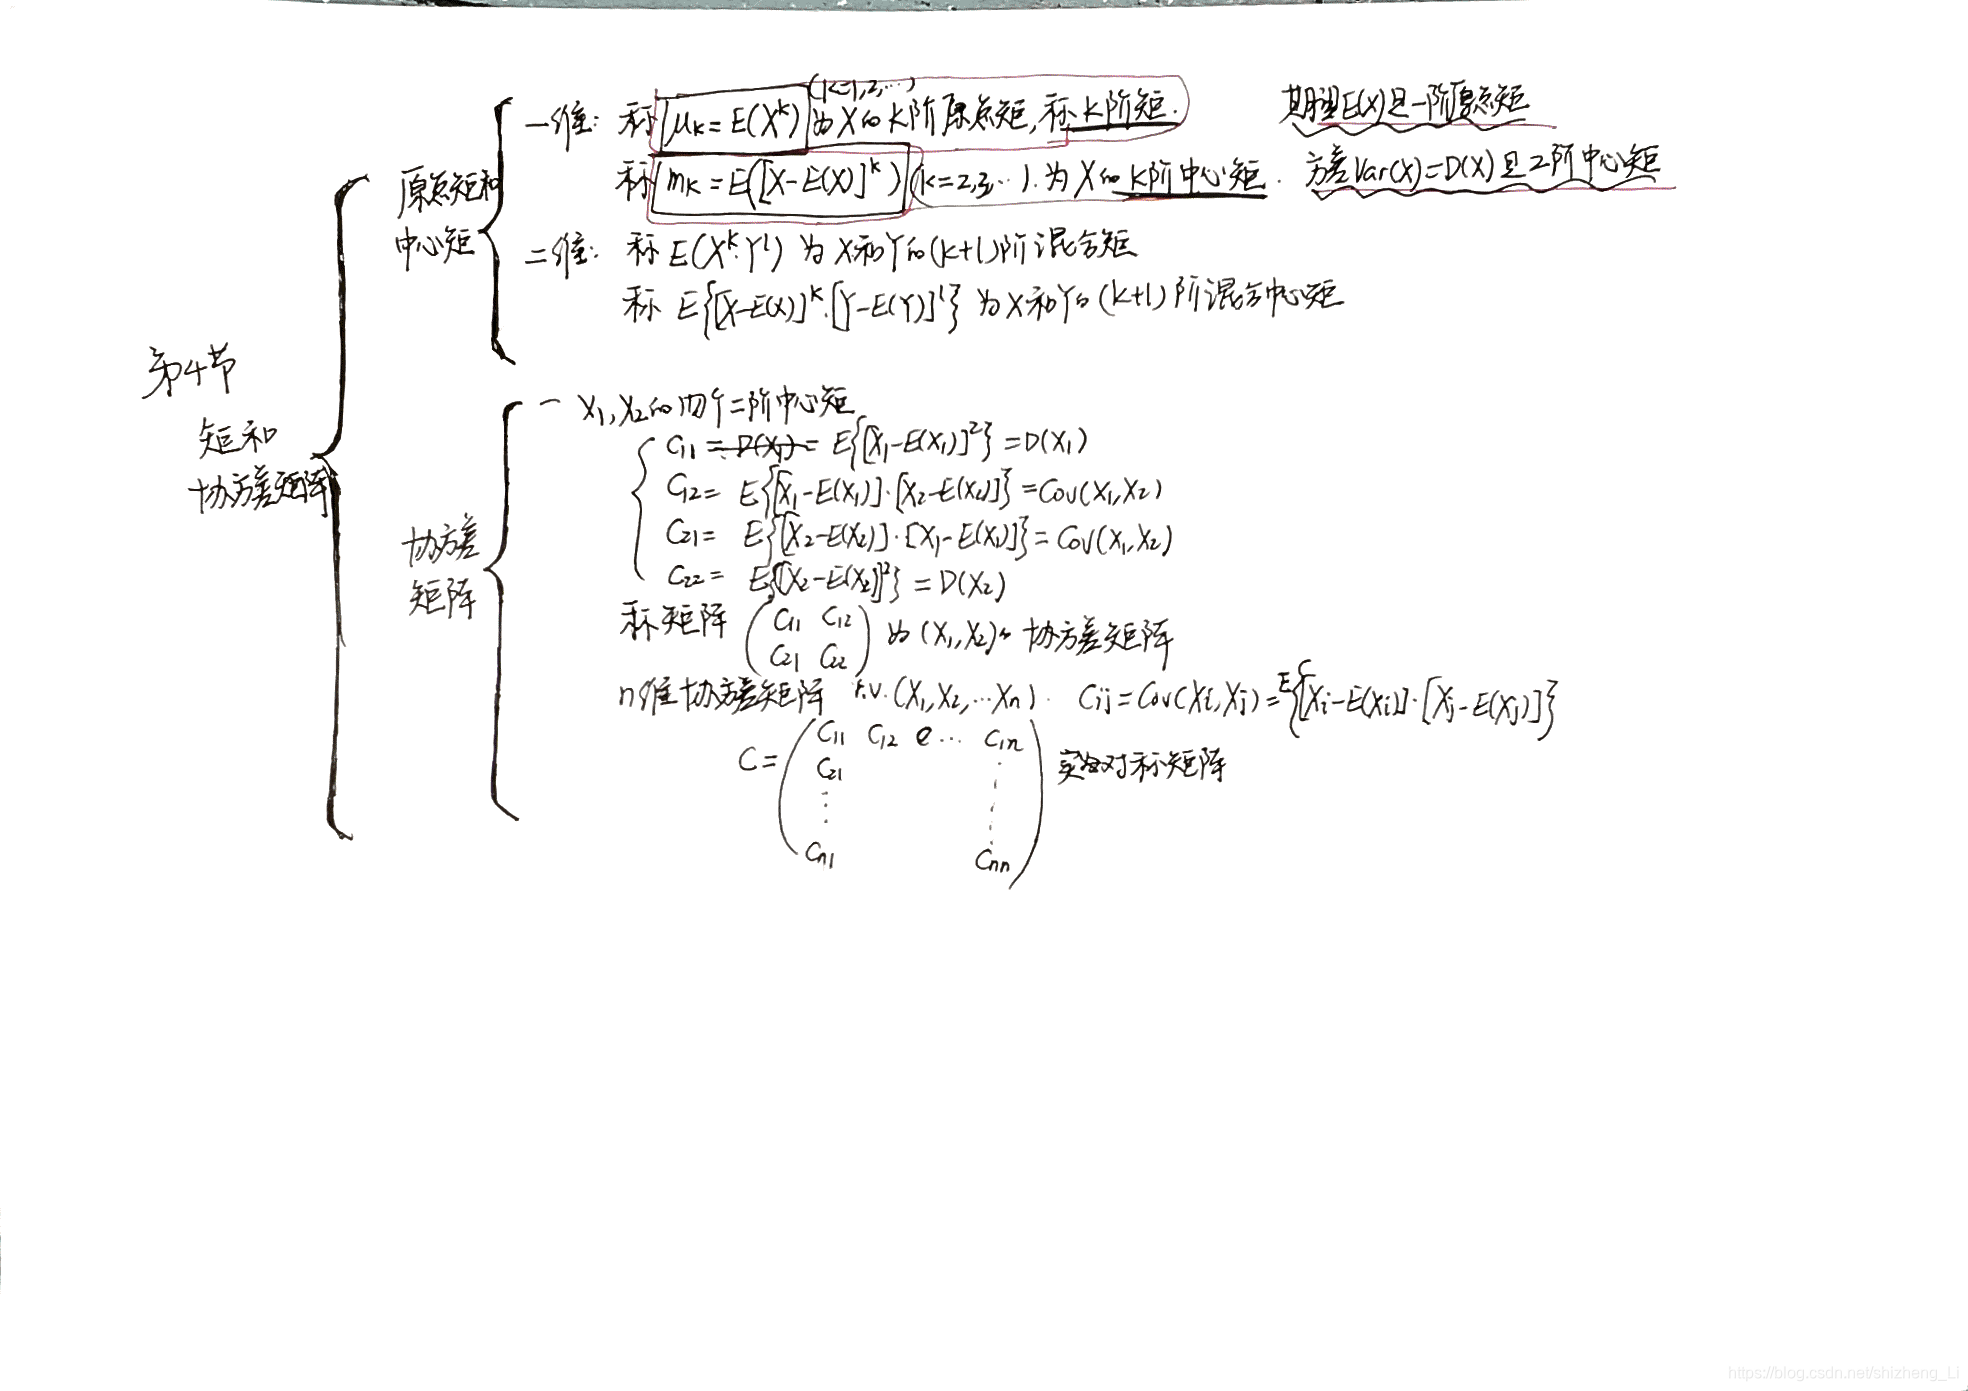 第4节
矩和
协方差矩阵
原点矩和
中心矩
一维: 称 μk = E(X^k) (k=1,2,…) 为X的k阶原点矩, 称k阶矩.
期望E(X)是一阶原点矩
称 mk = E([X-E(X)]^k) (k=2,3,…). 为X的k阶中心矩.
方差Var(X)=D(X)是2阶中心矩
二维: 称 E(X^k·Y^l) 为X和Y的(k+l)阶混合矩
称 E{[X-E(X)]^k·[Y-E(Y)]^l} 为X和Y的(k+l)阶混合中心矩
协方差
矩阵
一 X1,X2的四个二阶中心矩
C11 = D(X1) = E{[X1-E(X1)]^2} = D(X1)
C12 = E{[X1-E(X1)]·[X2-E(X2)]} = Cov(X1,X2)
C21 = E{[X2-E(X2)]·[X1-E(X1)]} = Cov(X1,X2)
C22 = E{[X2-E(X2)]^2} = D(X2)
称矩阵 (C11 C12
C21 C22) 为(X1,X2)的协方差矩阵
n维协方差矩阵 r.v.(X1,X2,…Xn). Cij = Cov(Xi,Xj) = E{[Xi-E(Xi)]·[Xj-E(Xj)]}
C = (C11 C12 … C1n
C21 ⋮
⋮ ⋮
Cn1 Cnn) 实对称矩阵
https://blog.csdn.net/shizheng_Li